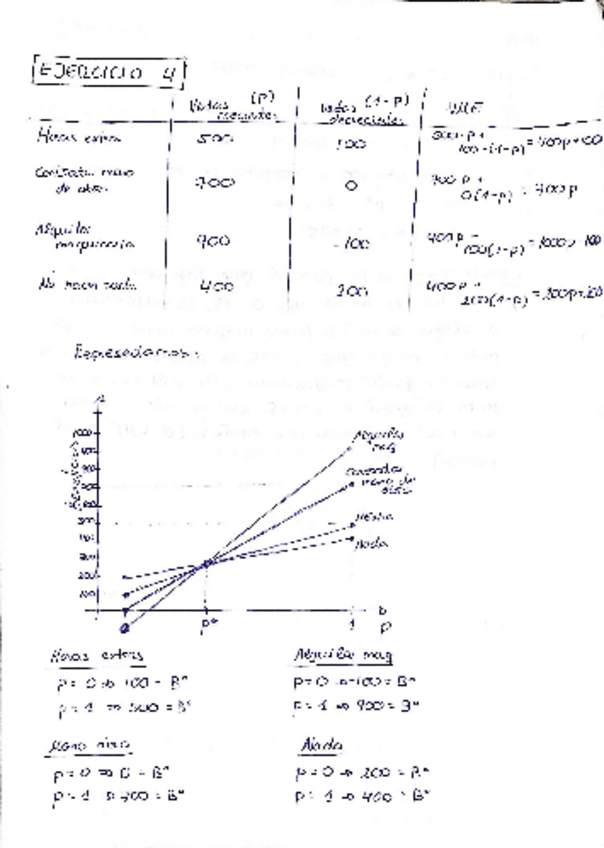 EJERCICIO 4
Ventas crecientes (p)
Ventas decrecientes (1-p)
VME
Horas extra 500 100 500·p + 100·(1-p) = 400p+100
Contratar mano de obra 700 0 700 p + 0(1-p) = 700p
Alquilar maquinaria 900 -100 100(1-p) = 1000p-100
No hacer nada 400 200 400p + 200(1-p) = 200p+200
Representamos:
Beneficios
1000
900
800
500
400
300
200
100
Alquilar maq
Contratar mano de obra
Nada
p*
1
p
Horas extras
Alquilar maq
p = 0 ⇒ 100 = Bº
p = 0 ⇒ -100 = Bº
p = 1 ⇒ 500 = Bº
p = 1 ⇒ 900 = Bº
Mano obra
Nada
p = 0 ⇒ 0 = Bº
p = 0 ⇒ 200 = Bº
p = 1 ⇒ 700 = Bº
p = 1 ⇒ 400 = Bº